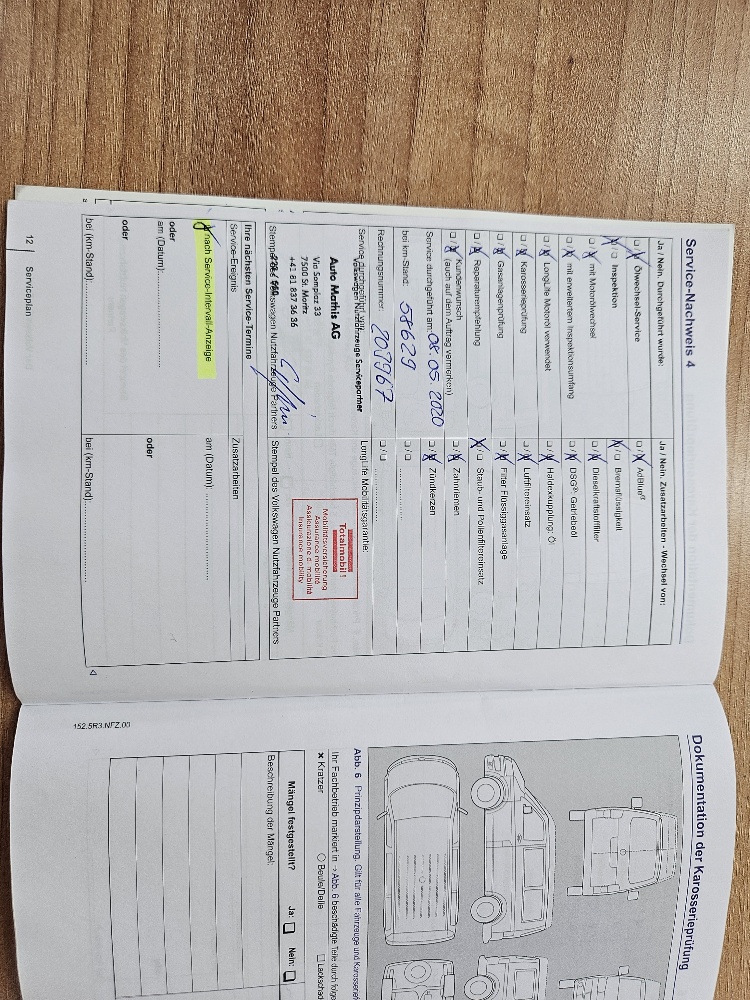 Service-Nachweis 4
Ja / Nein. Durchgeführt wurde:
Ölwechsel-Service
Inspektion
mit Motorölwechsel
mit erweitertem Inspektionsumfang
LongLife Motoröl verwendet
Karosserieprüfung
Gasanlagenprüfung
Reparaturempfehlung
Kundenwunsch
(auch auf dem Auftrag vermerken)
Service durchgeführt am: 08.05.2020
bei km-Stand: 58629
Rechnungsnummer: 209967
Service durchgeführt von:
Volkswagen Nutzfahrzeuge Servicepartner
Auto Mathis AG
Via Somplaz 33
7500 St. Moritz
+41 81 837 36 36
Stempel des Volkswagen Nutzfahrzeuge Partners
Ja / Nein. Zusatzarbeiten - Wechsel von:
AdBlue®
Bremsflüssigkeit
Dieselkraftstofffilter
DSG®-Getriebeöl
Haldexkupplung: Öl
Luftfiltereinsatz
Filter Flüssiggasanlage
Staub- und Pollenfiltereinsatz
Zahnriemen
Zündkerzen
LongLife Mobilitätsgarantie:
Totalmobil!
Mobilitätsversicherung
Assurance mobilité
Assicurazione d. mobilità
Insurance mobility
Stempel des Volkswagen Nutzfahrzeuge Partners
Ihre nächsten Service-Termine
Service-Ereignis
nach Service-Intervall-Anzeige
oder
am (Datum):
oder
bei (km-Stand):
Zusatzarbeiten
am (Datum):
oder
bei (km-Stand):
12 Serviceplan
Dokumentation der Karosserieprüfung
Abb. 6 Prinzipdarstellung. Gilt für alle Fahrzeuge und
Ihr Fachbetrieb markiert in →Abb. 6 beschädigte Teile durch
Kratzer
Beule/Delle
Mängel festgestellt?
Ja:
Nein:
Beschreibung der Mängel:
152.5R3.NFZ.00